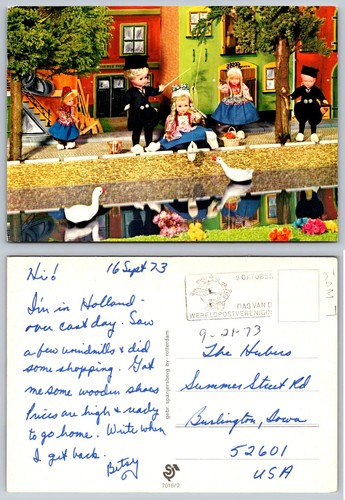 Hi! 16 Sept 73
I'm in Holland -
over cast day. Saw
a few windmills & did
some shopping. Got
me some wooden shoes
Prices are high & ready
to go home. Write when
I get back.
Betsy
gebr. spanjersberg bv - rotterdam
7016/2
9 OKTOBER
DAG VAN D
WERELDPOSTVERENIGIN
9-21-73
The Hubers
Summer Street Rd
Burlington, Iowa
52601
USA